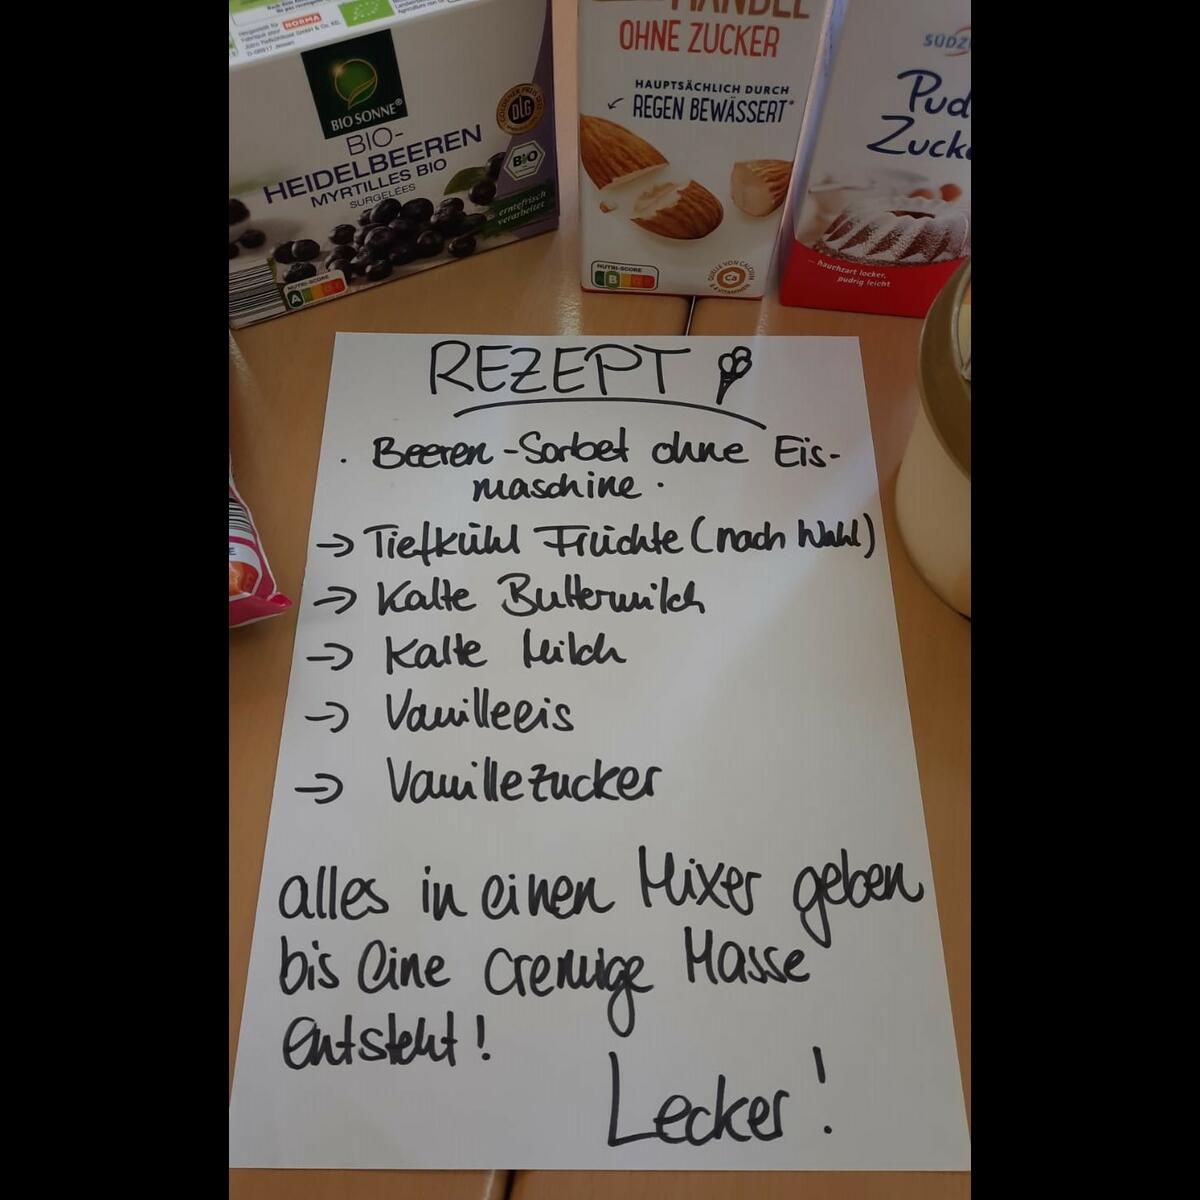 Hergestellt für
NORMA
BIO SONNE®
BIO-
HEIDELBEEREN
MYRTILLES BIO
SURGELÉES
DLG
BIO
erntefrisch
verarbeitet
NUTRI-SCORE
A
MANDEL
OHNE ZUCKER
HAUPTSÄCHLICH DURCH
REGEN BEWÄSSERT*
NUTRI-SCORE
B
QUELLE VON CALCIUM
Ca
SÜDZ
Pud
Zucke
hauchzart locker,
pudrig leicht
REZEPT
Beeren-Sorbet ohne Eis-
maschine.
→ Tiefkühl Früchte (nach Wahl)
→ Kalte Buttermilch
→ Kalte Milch
→ Vanilleeis
→ Vanillezucker
alles in einen Mixer geben
bis eine cremige Masse
entsteht!
Lecker!